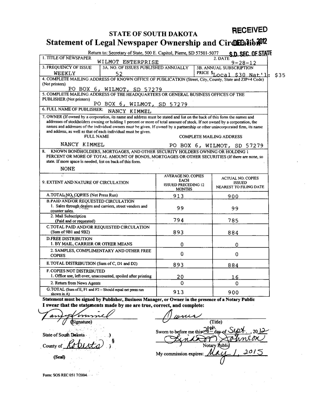 RECEIVED
STATE OF SOUTH DAKOTA
Statement of Legal Newspaper Ownership and Circulation
Return to: Secretary of State, 500 E. Capitol, Pierre, SD 57501-5077
S.D. SEC. OF STATE
1. TITLE OF NEWSPAPER
WILMOT ENTERPRISE
2. DATE
9-28-12
3. FREQUENCY OF ISSUE
WEEKLY
3A. NO. OF ISSUES PUBLISHED ANNUALLY
52
3B. ANNUAL SUBSCRIPTION
PRICE Local $30 Nat'l: $35
4. COMPLETE MAILING ADDRESS OF KNOWN OFFICE OF PUBLICATION (Street, City, County, State and ZIP+4 Code)
(Not printers)
PO BOX 6, WILMOT, SD 57279
5. COMPLETE MAILING ADDRESS OF THE HEADQUARTERS OR GENERAL BUSINESS OFFICES OF THE
PUBLISHER (Not printer)
PO BOX 6, WILMOT, SD 57279
6. FULL NAME OF PUBLISHER:
NANCY KIMMEL
7. OWNER (If owned by a corporation, its name and address must be stated and list on the back of this form the names and
addresses of stockholders owning or holding 1 percent or more of total amount of stock. If not owned by a corporation, the
names and addresses of the individual owners must be given. If owned by a partnership or other unincorporated firm, its name
and address, as well as that of each individual must be given.
FULL NAME
COMPLETE MAILING ADDRESS
NANCY KIMMEL
PO BOX 6, WILMOT, SD 57279
8. KNOWN BONDHOLDERS, MORTGAGES, AND OTHER SECURITY HOLDERS OWNING OR HOLDING 1
PERCENT OR MORE OF TOTAL AMOUNT OF BONDS, MORTGAGES OR OTHER SECURITIES (If there are none, so
state. If more space is needed, list on back of this form.
NONE
9. EXTENT AND NATURE OF CIRCULATION
AVERAGE NO. COPIES
EACH
ISSUED PRECEDING 12
MONTHS
ACTUAL NO. COPIES
ISSUED
NEAREST TO FILING DATE
A. TOTAL NO. COPIES (Net Press Run)
913
900
B. PAID AND/OR REQUESTED CIRCULATION
1. Sales through dealers and carriers, street vendors and
counter sales.
99
99
2. Mail Subscription
(Paid and or requested)
794
785
C. TOTAL PAID AND/OR REQUESTED CIRCULATION
(Sum of 9B1 and 9B2)
893
884
D. FREE DISTRIBUTION
1. BY MAIL, CARRIER OR OTHER MEANS
0
0
2. SAMPLES, COMPLIMENTARY AND OTHER FREE
COPIES
0
0
E. TOTAL DISTRIBUTION (Sum of C, D1 and D2)
893
884
F. COPIES NOT DISTRIBUTED
1. Office use, left over, unaccounted, spoiled after printing
20
16
2. Return from News Agents
0
0
G. TOTAL (Sum of E, F1 and F2 - Should equal net press run
shown in A)
913
900
Statement must be signed by Publisher, Business Manager, or Owner in the presence of a Notary Public
I swear that the statements made by me are true, correct, and complete:
Nancy Kimmel
Owner
(Signature)
(Title)
State of South Dakota )
Sworn to before me this 28th day of Sept, 2012
County of Roberts ) §
Notary Public
(Seal)
My commission expires: May 1, 2015
Form: SOS REC 051 7/2004